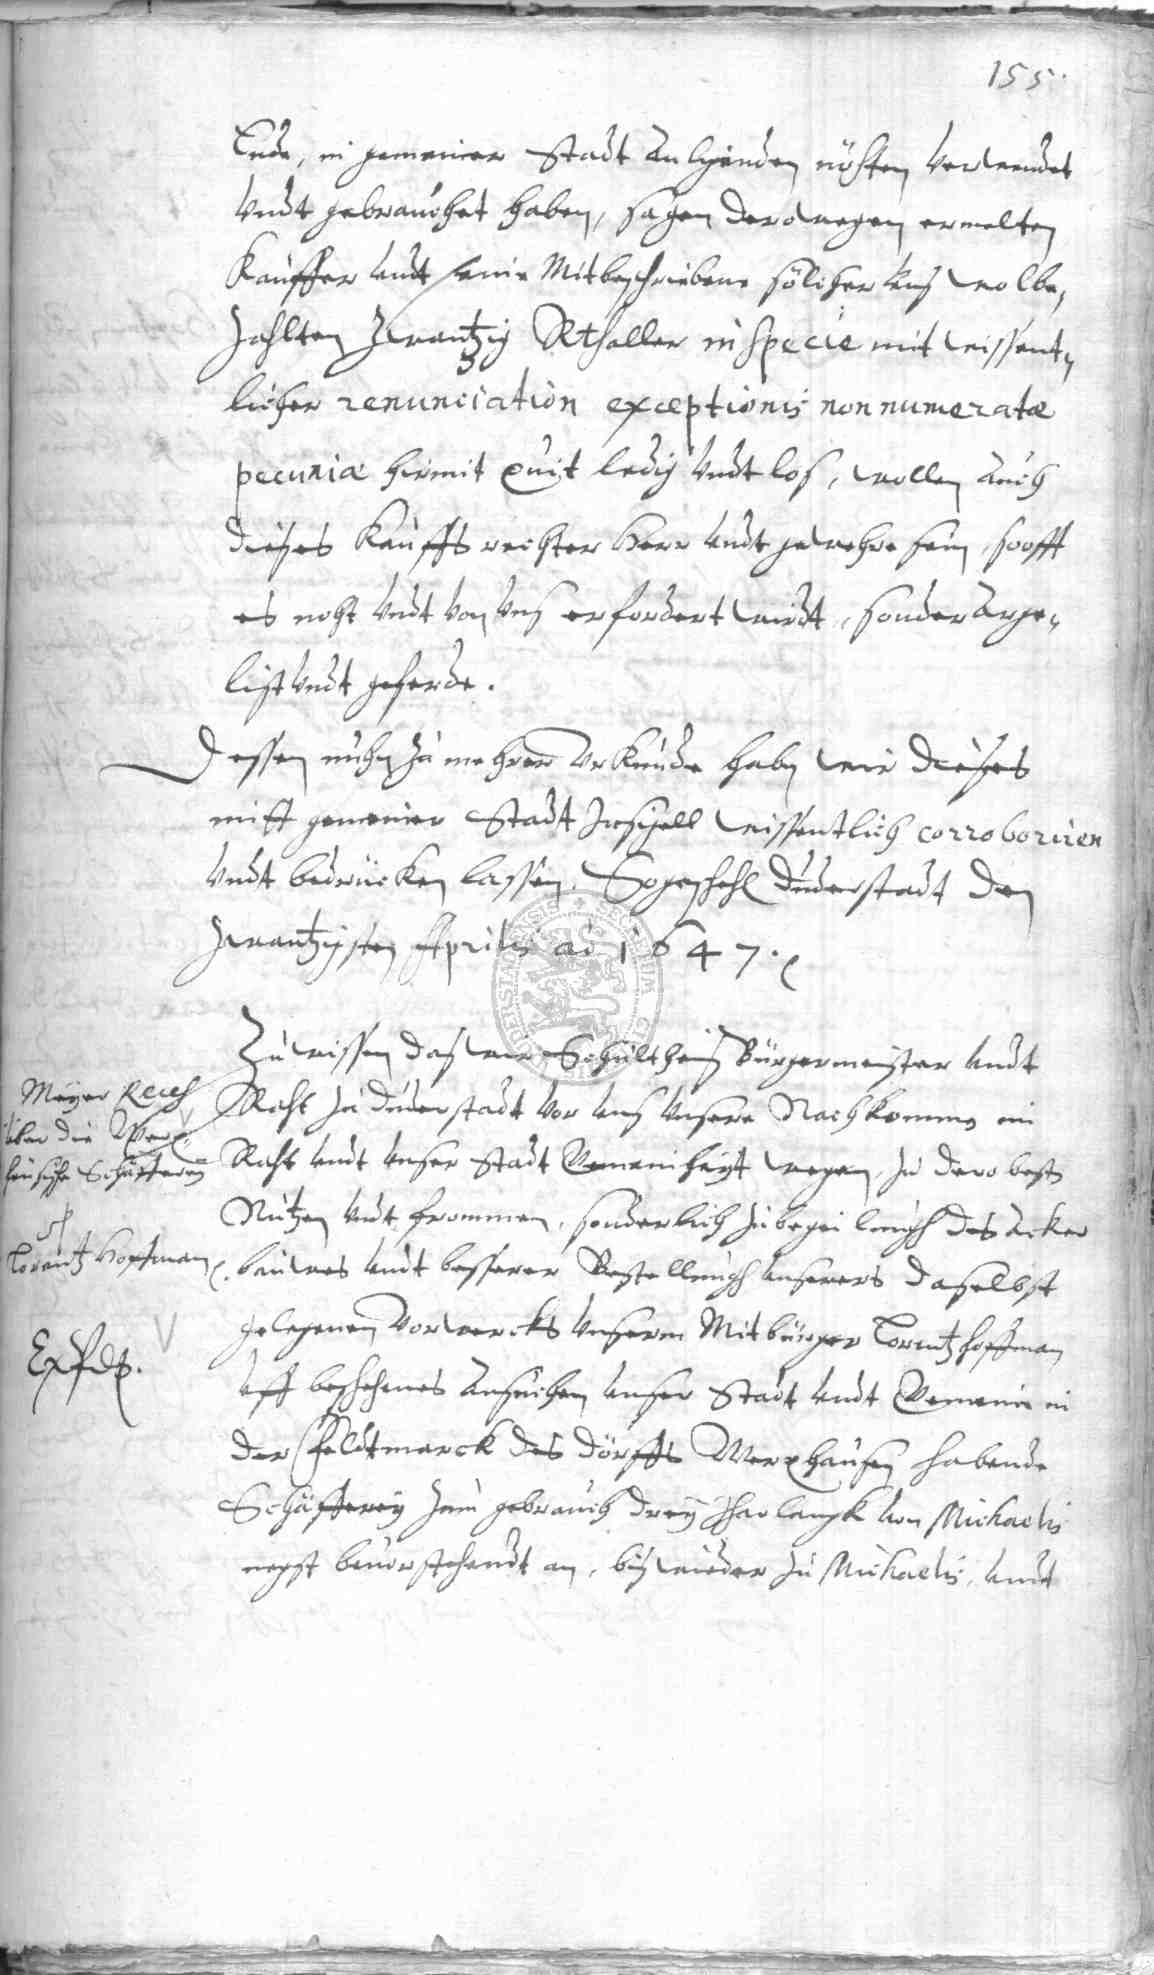 155.
Ende, in gemeiner Stadt anligenden nöhten verwendet
Undt gebrauchet haben, sagen derowegen ermelten
Kauffer undt seine Mitbeschriebene solcher uns wolbe,
zahlten zwantzig Rthaller in specie mit wissent,
licher renunciation exceptionis non numeratæ
pecuniæ hirmit quit ledig Undt los, wollen auch
dieses Kauffs rechter Herr undt gewehre sein, so offt
es noht Undt von Uns erfordert wirdt, sonder arge,
list Undt geferde.
Dessen nuhn zu mehrer Urkunde haben wir dieses
mitt gemeiner Stadt Insigell wissentlich corroboriren
Undt bedrücken lassen. So geschehen Duderstadt den
zwantzigsten Aprilis ao 1647.
Zu wissen das wir Schultheis Bürgermeister undt
Raht zu Duderstadt vor uns Unsere Nachkommen im
Raht undt unser Stadt Gemeinheyt wegen, zu dero besten
Nutzen Undt frommen, sonderlich zu des Acker
bauwes undt besserer Bestellungh unsers daselbst
gelegenen Vorwercks Unserm Mitbürger Lorentz Hoffman
uff beschehenes ansuchen unser Stadt undt Gemeine in
der Feldtmarck des dorffs Werxhausen habende
Schäfferey zum gebrauch drey Jhar langk von Michaelis
negst bevorstehendt an, bis wieder zu Michaelis, undt
Meyer Reces
über die Werx,
heusische Schäfferey
Lorentz Hoffman